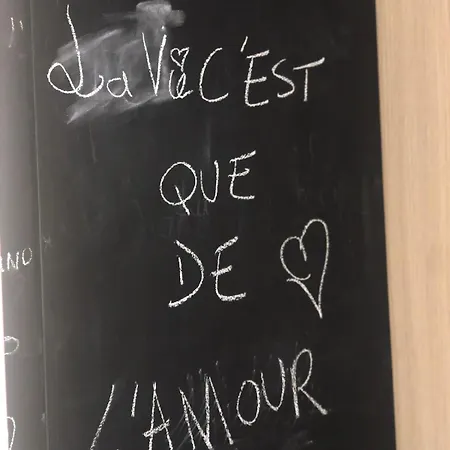 La Vie C'EST
QUE
DE
L'AMOUR